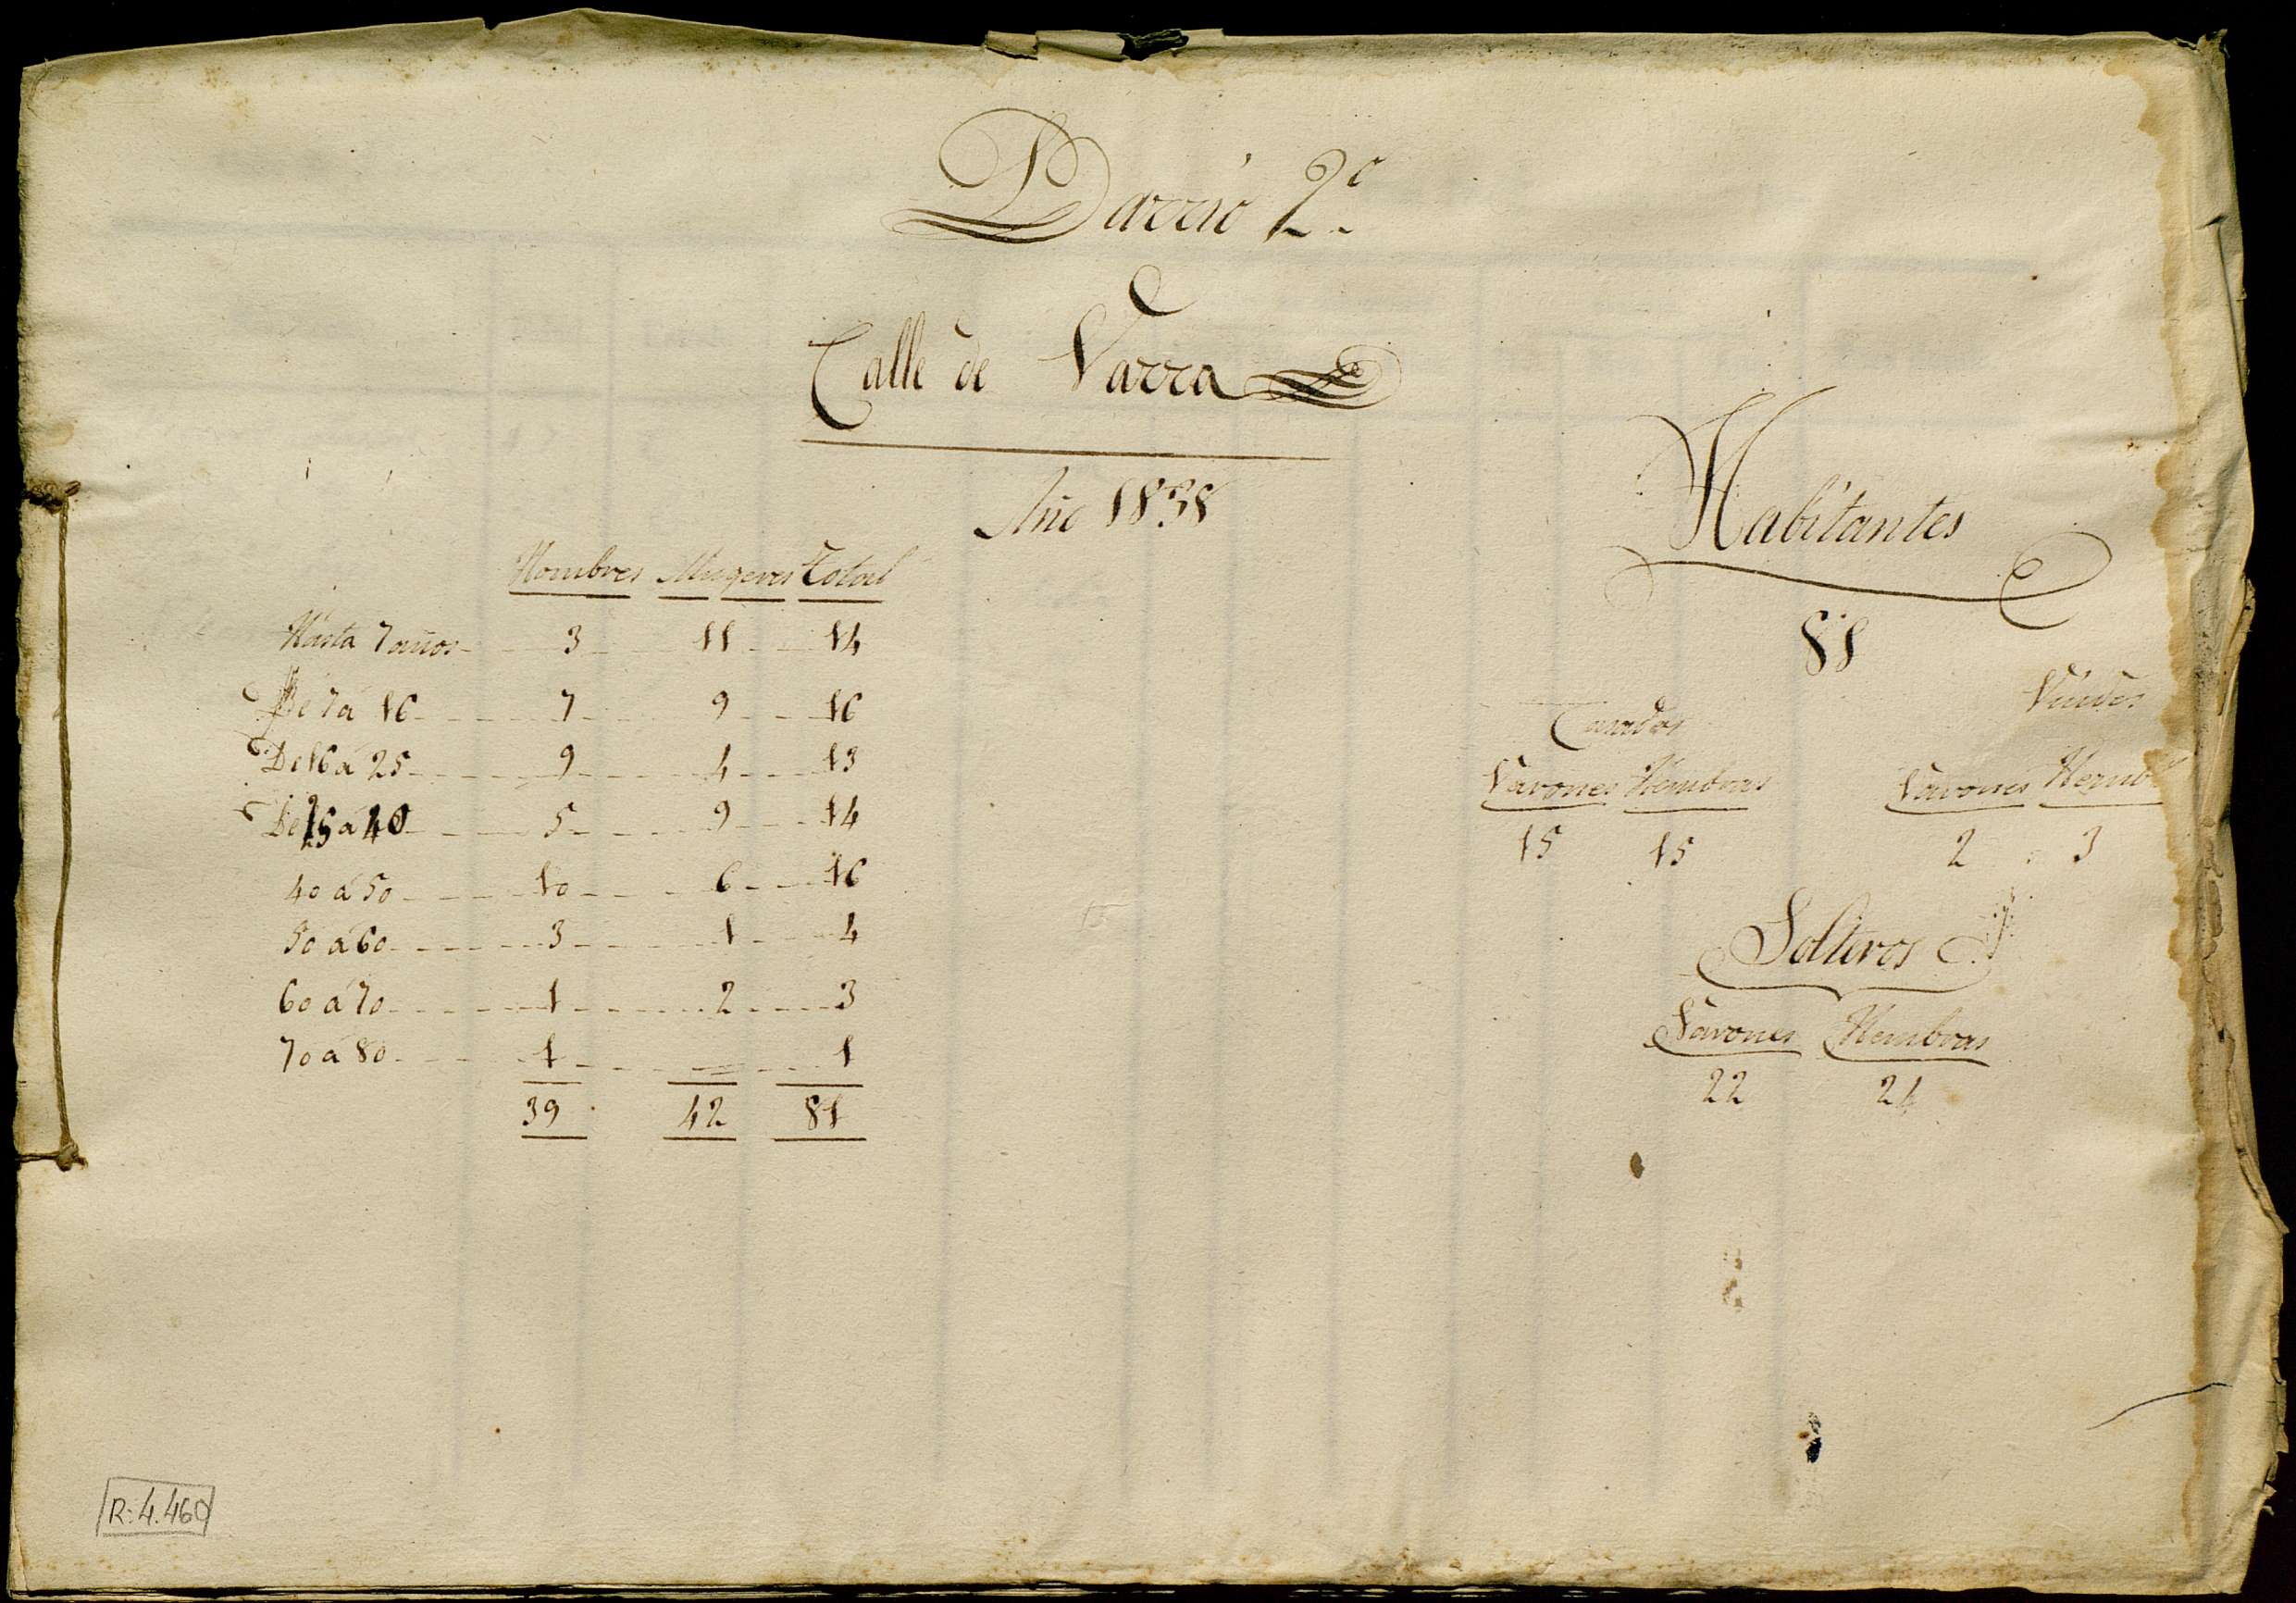 Barrio 2º
Calle de Varra
Año 1838
Hombres Mugeres Total
Hasta 7 años 3 11 14
De 7 á 16 7 9 16
De 16 á 25 9 4 13
De 25 á 40 5 9 14
40 á 50 10 6 16
50 á 60 3 1 4
60 á 70 1 2 3
70 á 80 1 = 1
39 42 81
Habitantes
81
Casados Viudos
Varones Hembras Varones Hemb
15 15 2 3
Solteros
Varones Hembras
22 24
R: 4.460